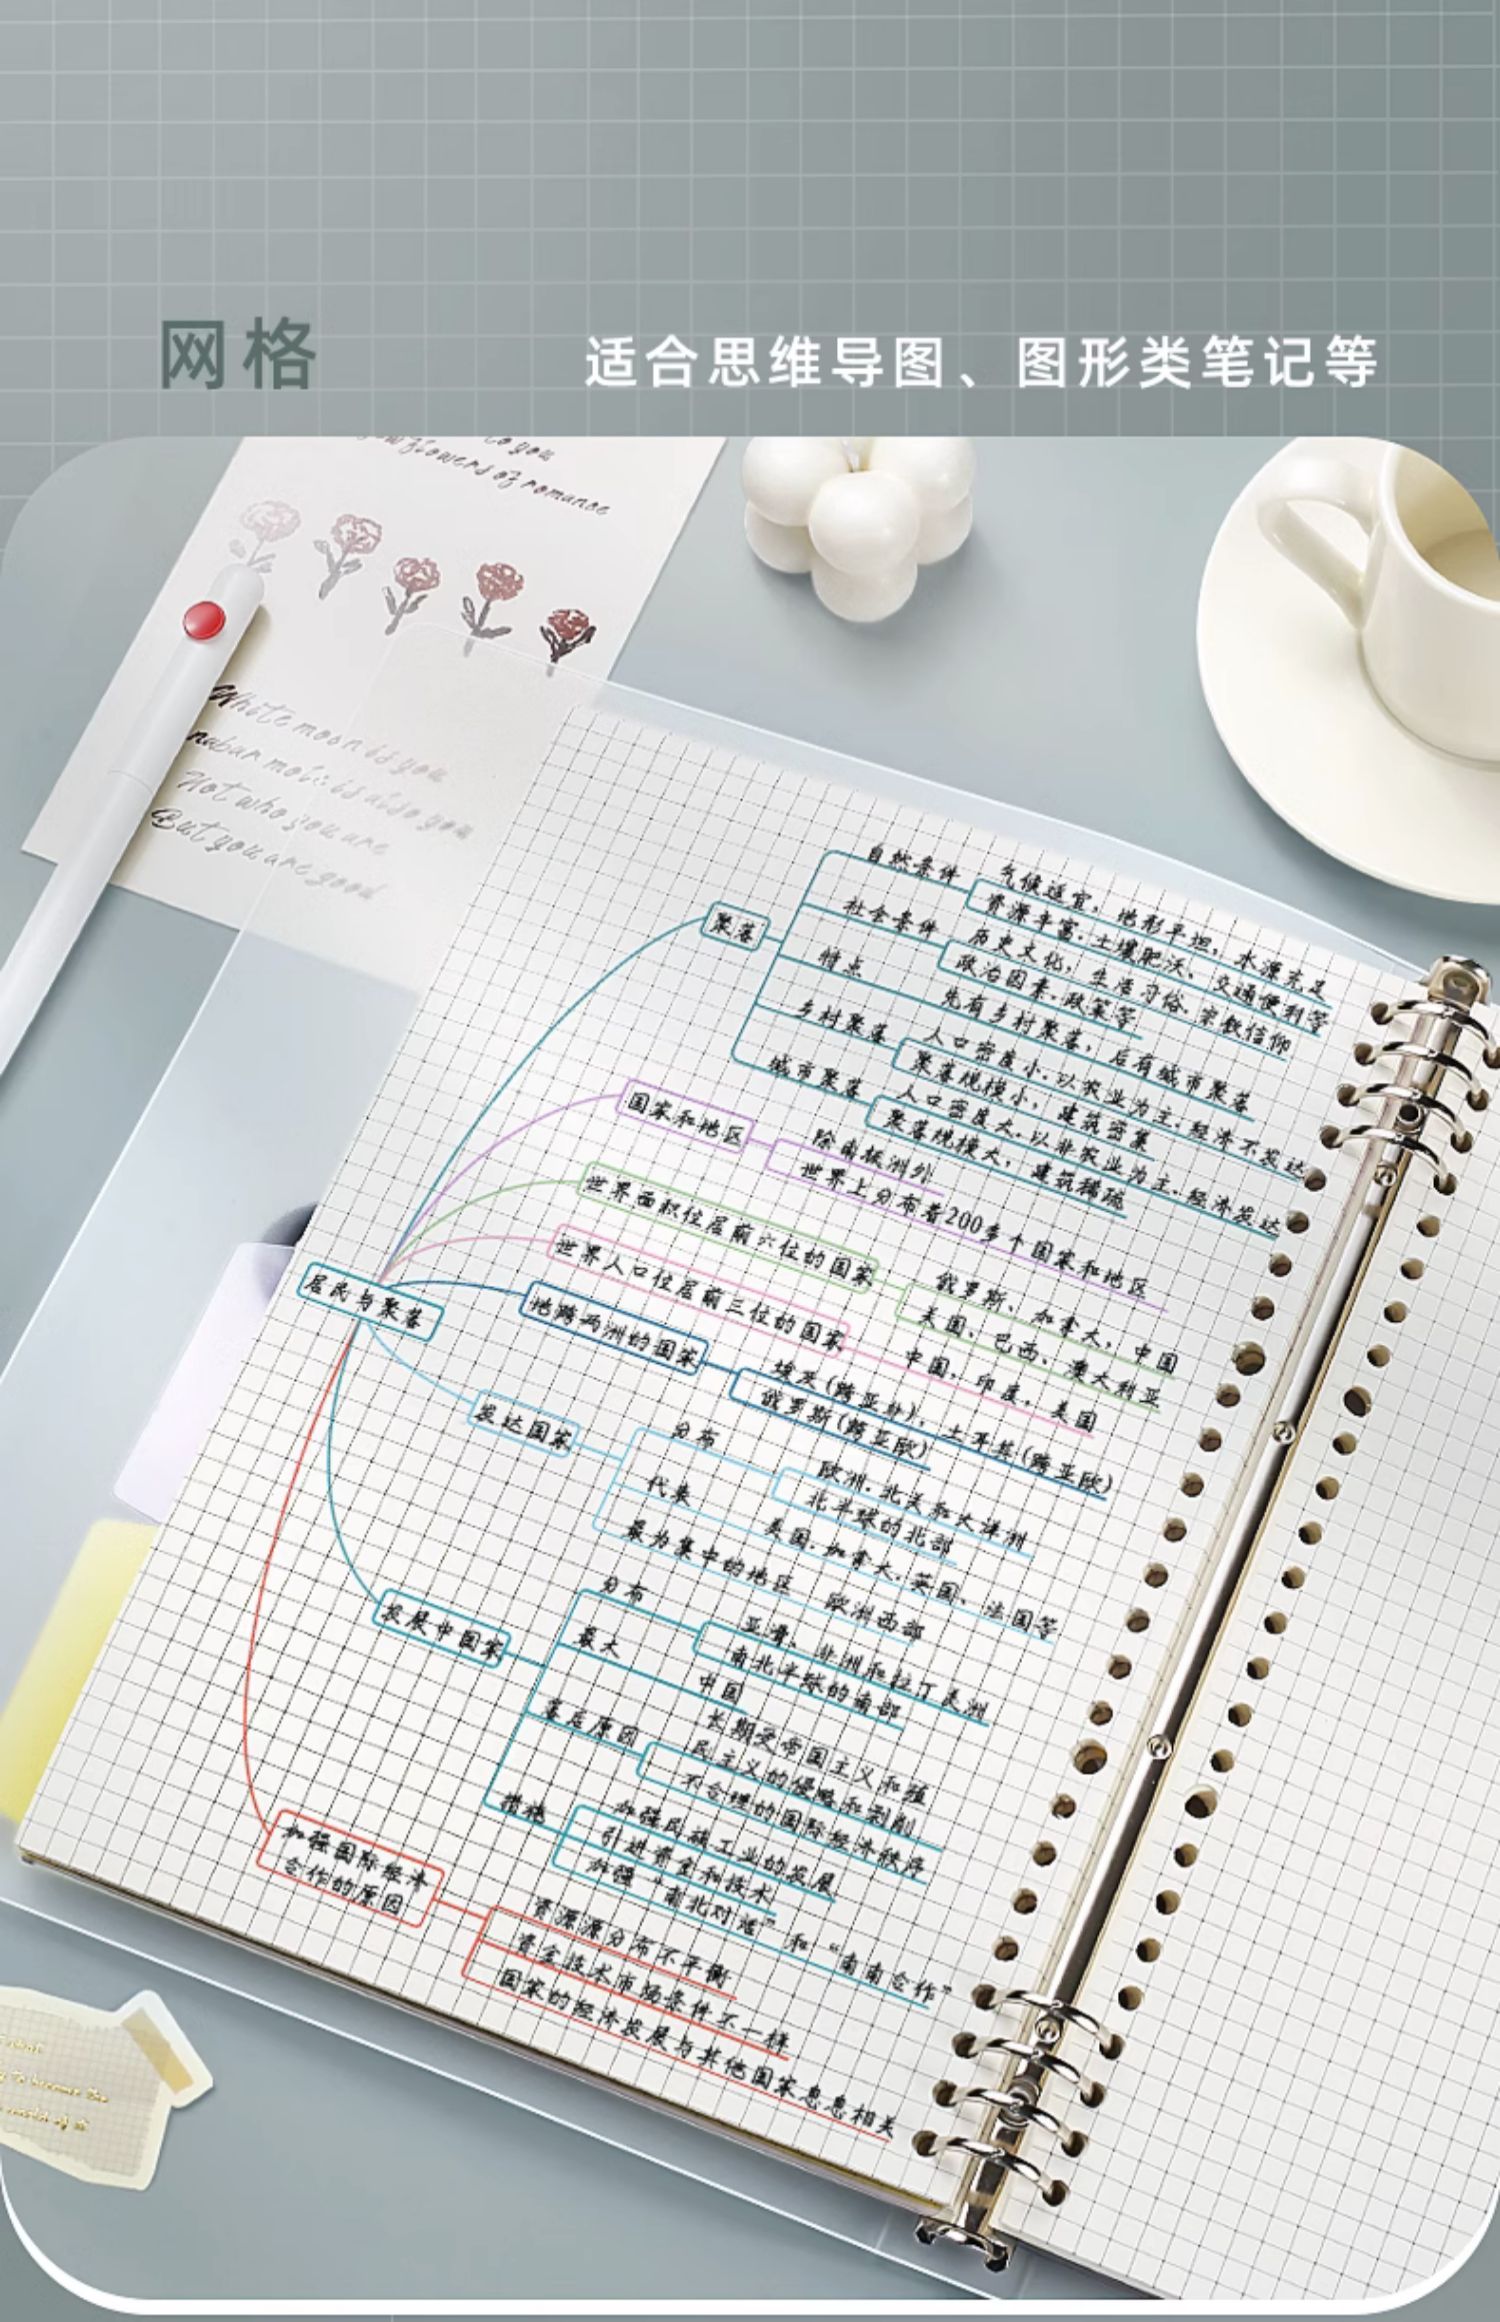 网格
适合思维导图、图形类笔记等
to you
flowers of romance
White moon is you
is also you
Not who you are
But you are good
居民与聚落
聚落
自然条件
气候适宜，地形平坦，水源充足
资源丰富、土壤肥沃、交通便利等
社会条件
历史文化，生活习俗、宗教信仰
政治因素、政策等
特点
先有乡村聚落，后有城市聚落
乡村聚落
人口密度小、以农业为主、经济不发达
聚落规模小，建筑密集
城市聚落
人口密度大、以非农业为主、经济发达
聚落规模大，建筑稀疏
国家和地区
除南极洲外
世界上分布着200多个国家和地区
世界面积位居前六位的国家
俄罗斯、加拿大，中国
美国、巴西、澳大利亚
世界人口位居前三位的国家
中国，印度，美国
地跨两洲的国家
埃及(跨亚非)，土耳其(跨亚欧)
俄罗斯(跨亚欧)
发达国家
分布
欧洲、北美和大洋洲
北半球的北部
代表
美国、加拿大、英国、法国等
最为集中的地区
欧洲西部
发展中国家
分布
亚洲、非洲和拉丁美洲
南北半球的南部
最大
中国
落后原因
长期受帝国主义和殖
民主义的侵略和剥削
不合理的国际经济秩序
措施
加强民族工业的发展
引进资金和技术
加强“南北对话”和“南南合作”
加强国际经济
合作的原因
资源源分布不平衡
资金技术市场条件不一样
国家的经济发展与其他国家息息相关